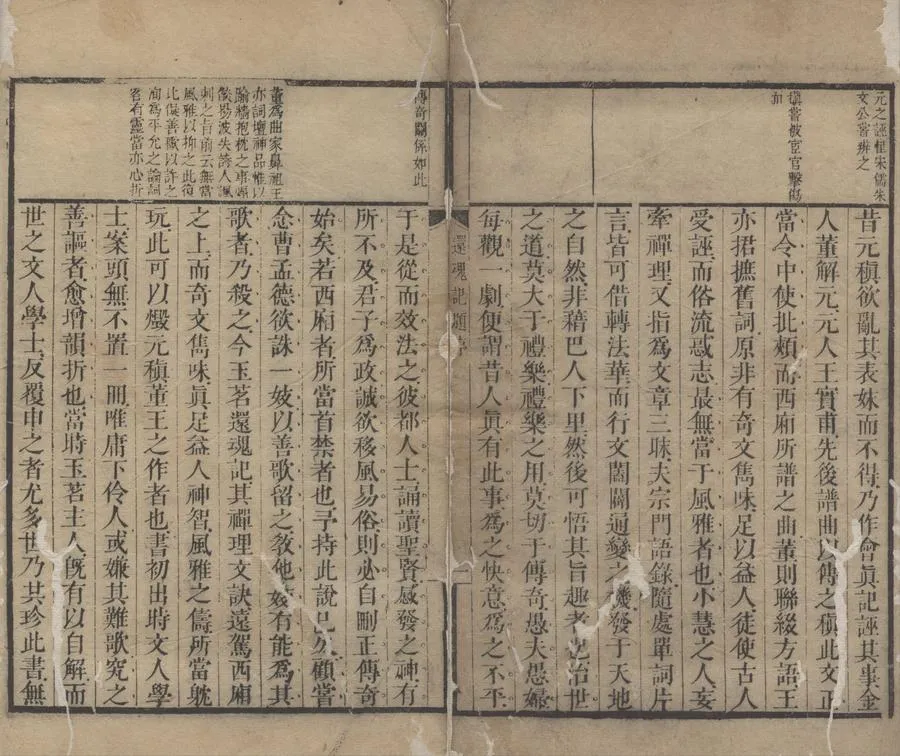 元之誣惟宋儒朱
文公嘗辨之
稹嘗被宦官擊傷
面
昔元稹欲亂其表妹而不得乃作會眞記誣其事金
人董解元元人王實甫先後譜曲以傳之稹此文正
當令中使批頰而西廂所譜之曲董則聯綴方語王
亦捃摭舊詞原非有奇文雋味足以益人徒使古人
受誣而俗流惑志最無當于風雅者也小慧之人妄
牽禪理又指為文章三昧夫宗門語錄隨處單詞片
言皆可借轉法華而行文闔闢通變之機發于天地
之自然非藉巴人下里然後可悟其旨趣者也治世
之道莫大于禮樂禮樂之用莫切于傳奇愚夫愚婦
每觀一劇便謂昔人眞有此事為之快意為之不平
還魂記題序
一
傳奇關係如此
董為曲家鼻祖王
亦詞壇神品惟以
踰牆抱枕之事
易波失誇人諷
刺之旨前云無當
風雅以抑之此復
比俱善歌以許之
洵為平允之論詞
客有靈當亦心折
于是從而效法之彼都人士誦讀聖賢感發之神有
所不及君子為政誠欲移風易俗則必自刪正傳奇
始矣若西廂者所當首禁者也予持此說已久顧嘗
念曹孟德欲誅一妓以善歌留之教他妓有能為其
歌者乃殺之今玉茗還魂記其禪理文訣遠駕西廂
之上而奇文雋味眞足益人神智風雅之儔所當躭
玩此可以燬元稹董王之作者也書初出時文人學
士案頭無不置一冊唯庸下伶人或嫌其難歌究之
善謳者愈增韻折也當時玉茗主人旣有以自解而
世之文人學士反覆申之者尤多世乃共珍此書無